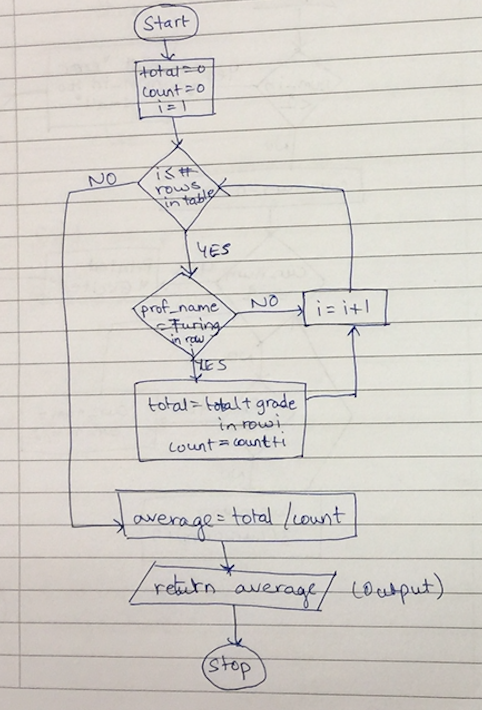 Start
total=0
count=0
i=1
i≤#
rows
in table
NO
YES
prof_name
=Turing
in row
i
NO
i=i+1
YES
total=total+grade
in row i
count=count+i
average=total/count
return average
(Output)
Stop